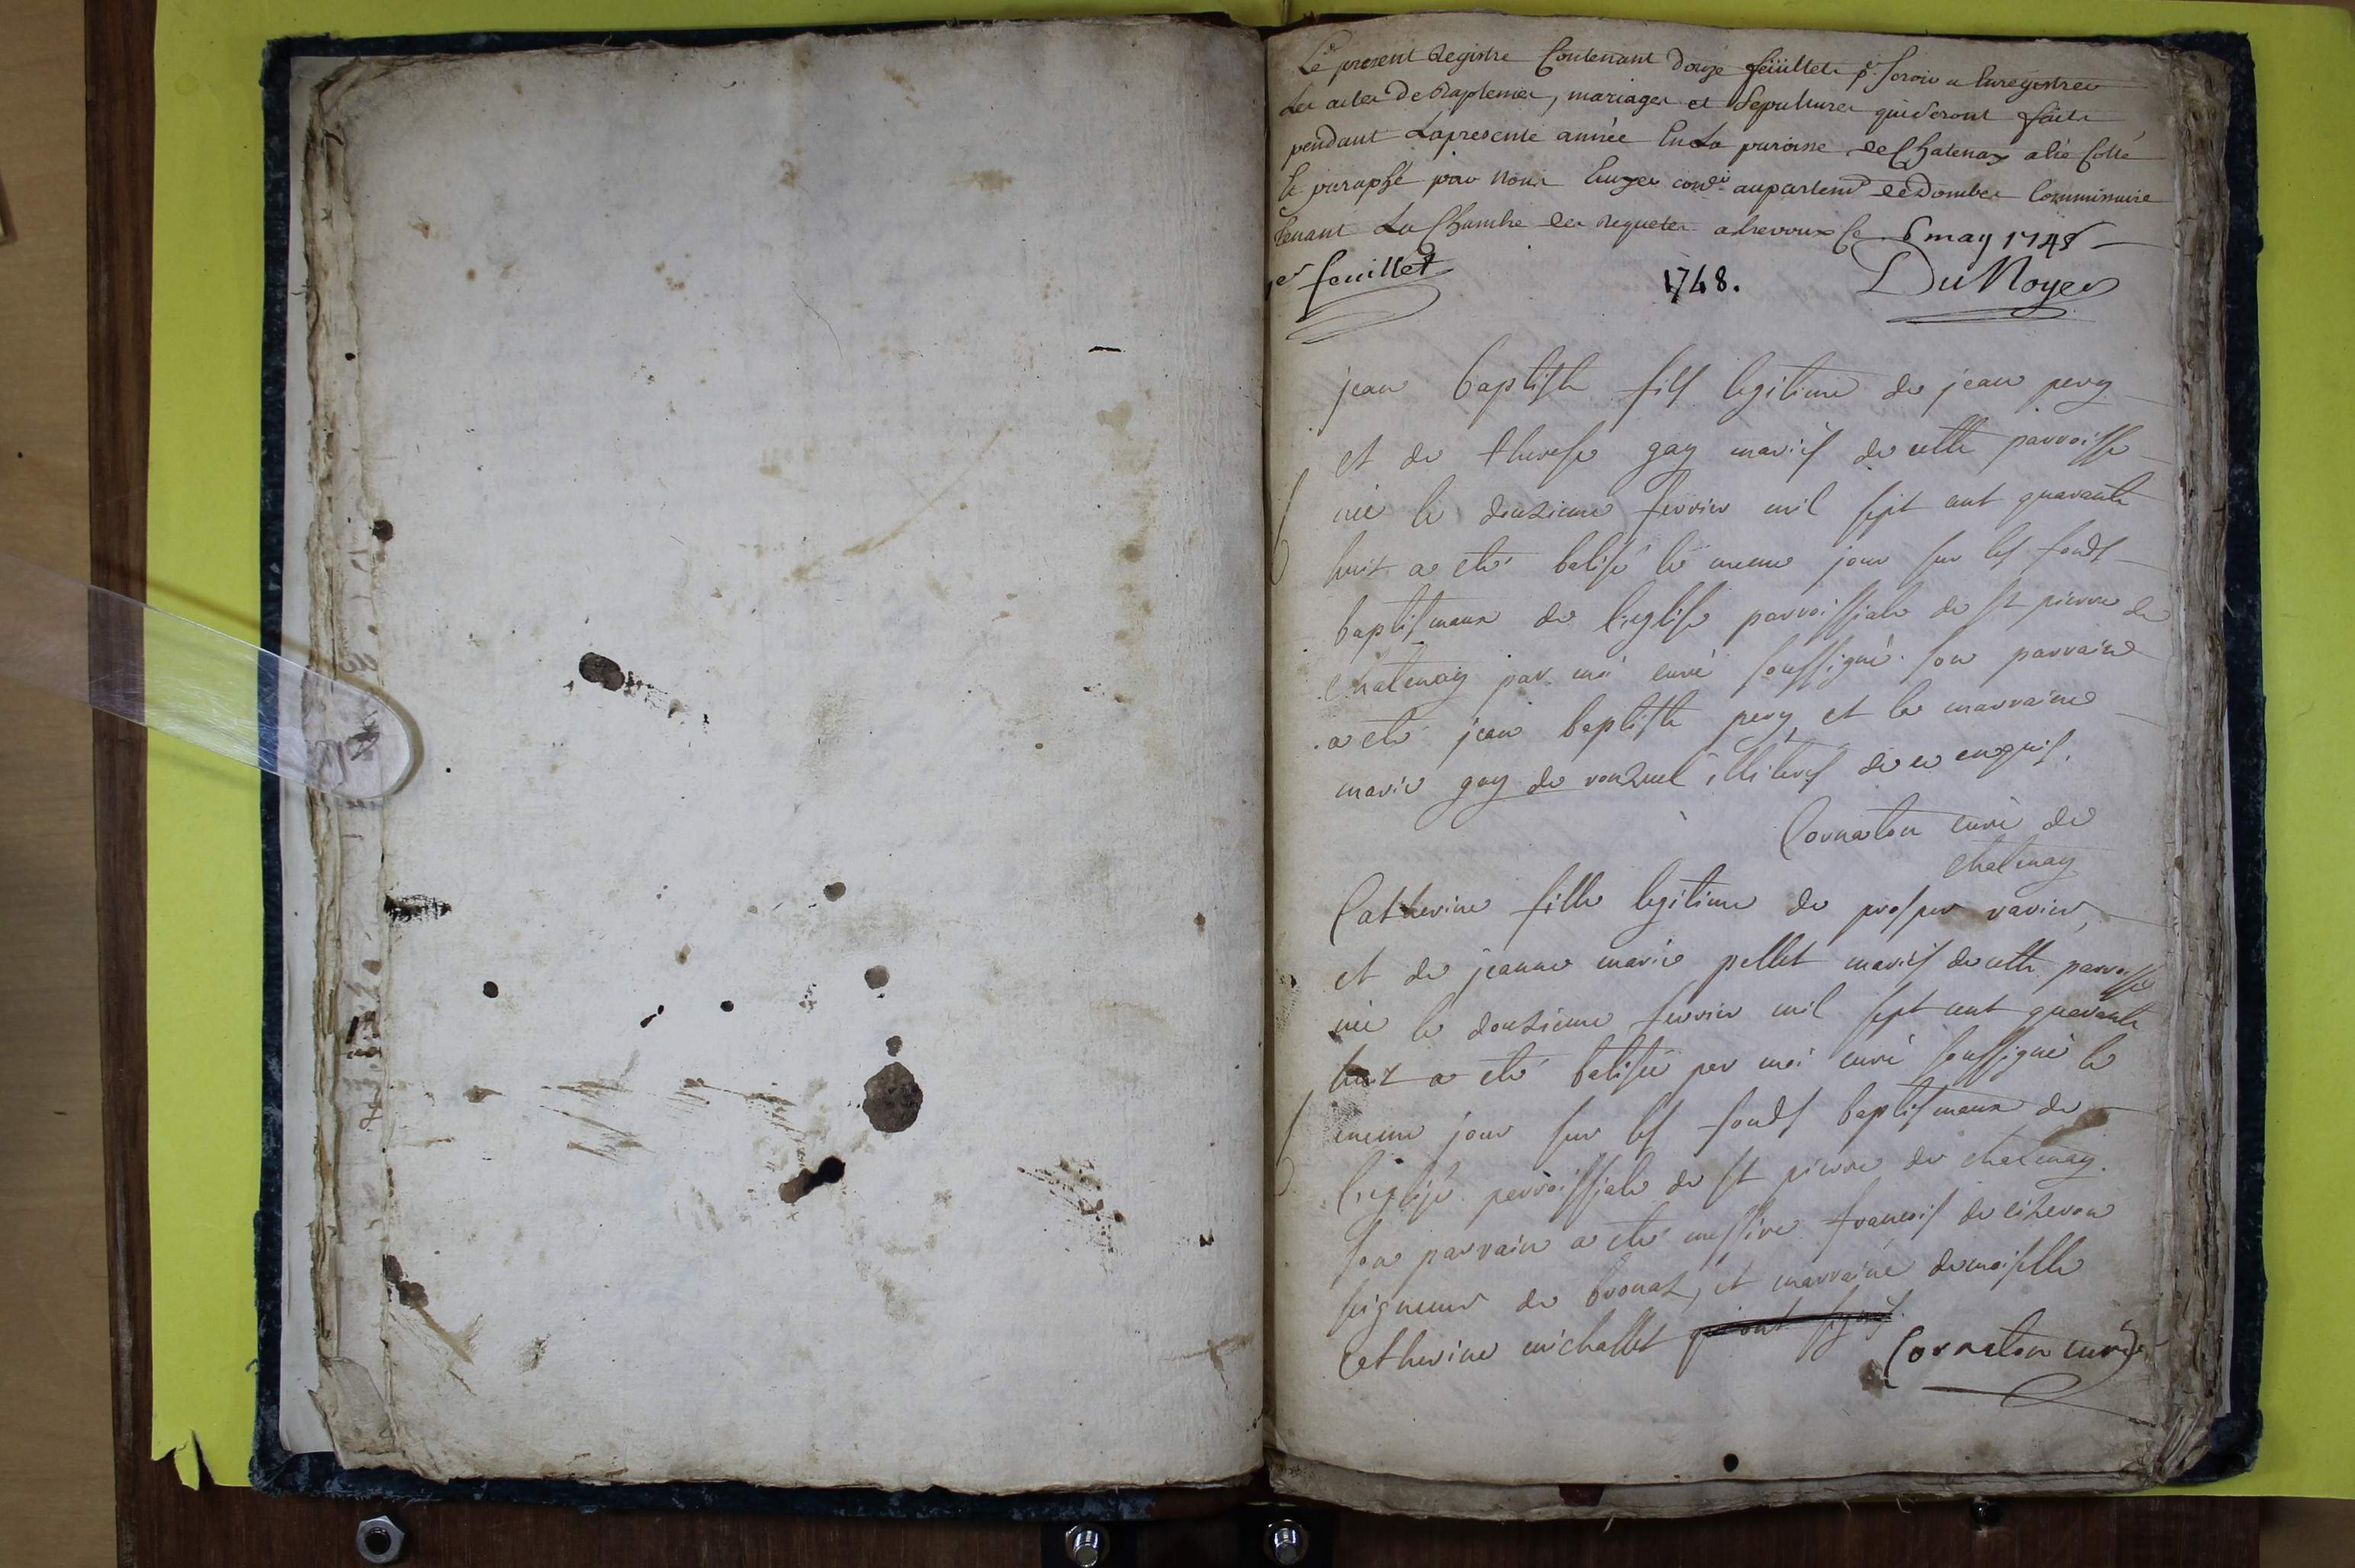 Le present Registre Contenant douze feüillets pr. servir a Enregistrer
Les actes de Baptemes, mariages et Sepultures qui seront faits
pendant La presente année En La paroisse de Chatenay a été Cotté
Et paraphé par Nous Ecuyer conser. au parlemt. de Dombes Commissaire
tenant La Chambre des requetes a trevoux ce 6 may 1748
1er feuillet 1748. DuNoyer
jean baptiste fils legitime de jean pery
et de therese gay mariés de cette parroisse
née le douzieme fevrier mil sept cent quarante
huit a eté batisé le meme jour sur les fonds
baptismaux de l'eglise parroissiale de st pierre de
chatenay par moi curé soussigné. son parrain
a eté jean baptiste pery, et la marraine
marie gay de ronzuel illiterés de ce enquis.
Cornaton curé de
chatenay
Catherine fille legitime de prosper ravier,
et de jeanne marie pellet mariés de cette parroisse
née le douzieme fevrier mil sept cent quarante
huit a eté batisée par moi curé soussigné le
meme jour sur les fonds baptismaux de
l'eglise parroissiale de st pierre de chatenay.
son parrain a eté messire francois de
seigneur de bronas, et marraine demoiselle
Catherine michallet qui ont signés.
Cornaton curé